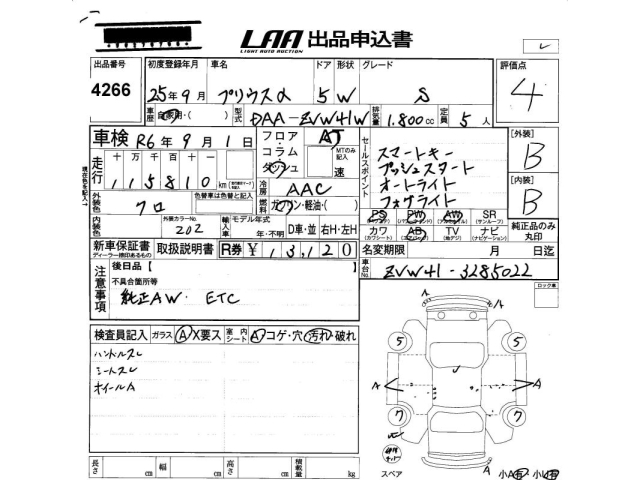 LAA 出品申込書
LIGHT AUTO AUCTION
出品番号 4266
初度登録年月 25年9月
車名 プリウスα
ドア 5 形状 W
グレード S
評価点 4
車歴 自家用・( )
型式 DAA-ZVW41W
排気量 1.800cc
定員 5人
車検 R6年9月1日
フロア AT
コラム
ダッシュ
MTのみ記入 速
走行 十万千百十一
115810 km
冷房 AAC
燃料 ガソリン・軽油・( )
外装色 クロ
色替車は色替と記入
内装色
外装カラーNo. 202
輸入車 モデル年式 年・不明
D車・並 右H・左H
セールスポイント
スマートキー
プッシュスタート
オートライト
フォグライト
[外装] B
[内装] B
PS PW AW SR
(サンルーフ)
カワ AB TV ナビ
(カワシート) (エアバッグ) (地デジ) (ナビゲーション)
純正品のみ丸印
新車保証書 取扱説明書 R券 ¥13,120
ディーラー捺印あるもの
名変期限 月 日迄
車台No. ZVW41-3285022
注意事項
後日品【
不具合箇所等
純正AW. ETC
ロック車
検査員記入 ガラス A/X要ス 室内シート A コゲ・穴 汚れ・破れ
ハンドルスレ
シートスレ
ホイールA
5 5
A A
7 7
A
スペア
小A有 小U有
長さ cm 幅 cm 高さ cm 積載量 kg